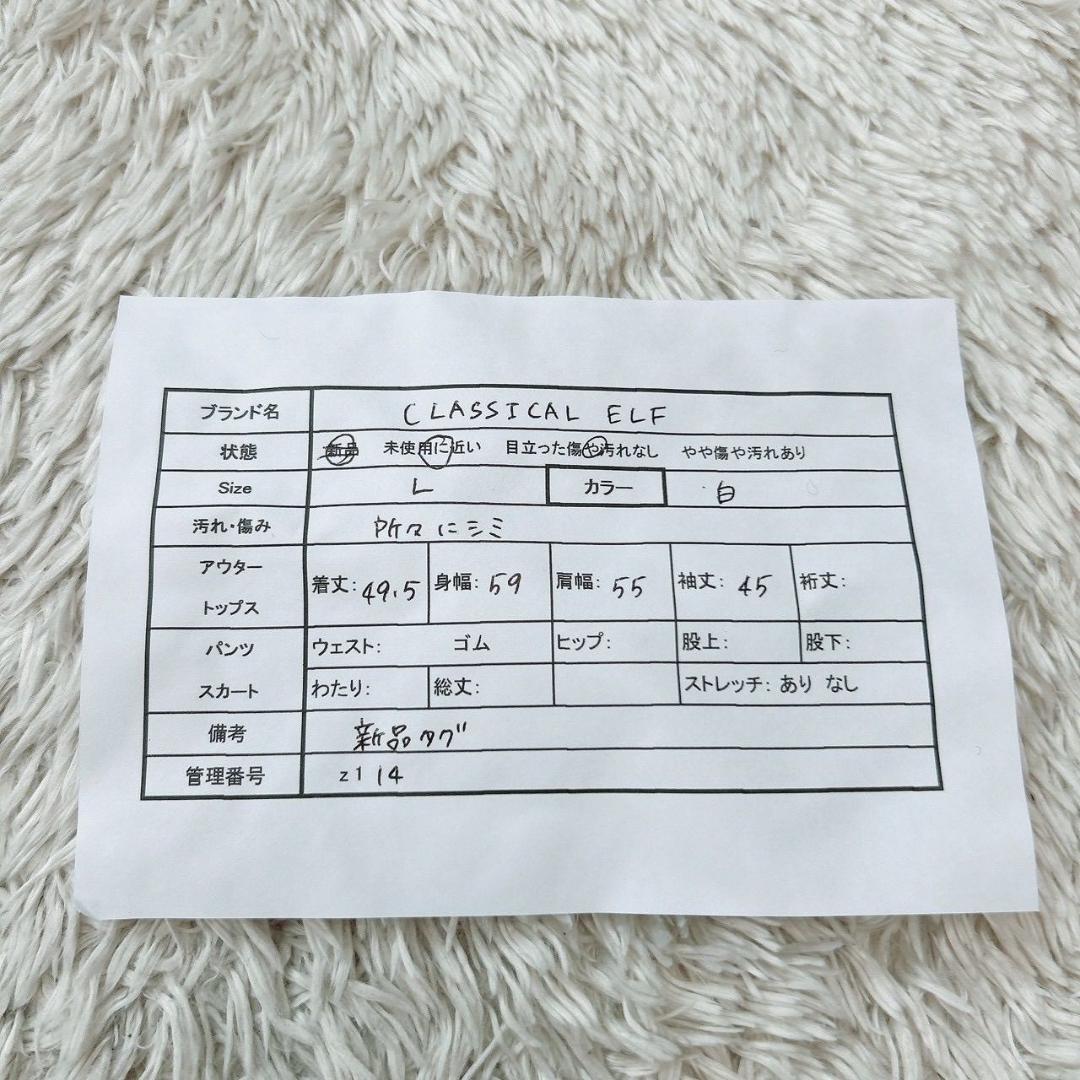 ブランド名 CLASSICAL ELF
状態 新品 未使用に近い 目立った傷や汚れなし やや傷や汚れあり
Size L カラー 白
汚れ・傷み 所々にシミ
アウター
トップス 着丈: 49.5 身幅: 59 肩幅: 55 袖丈: 45 裄丈:
パンツ ウェスト: ゴム ヒップ: 股上: 股下:
スカート わたり: 総丈: ストレッチ: あり なし
備考 新品タグ
管理番号 z114